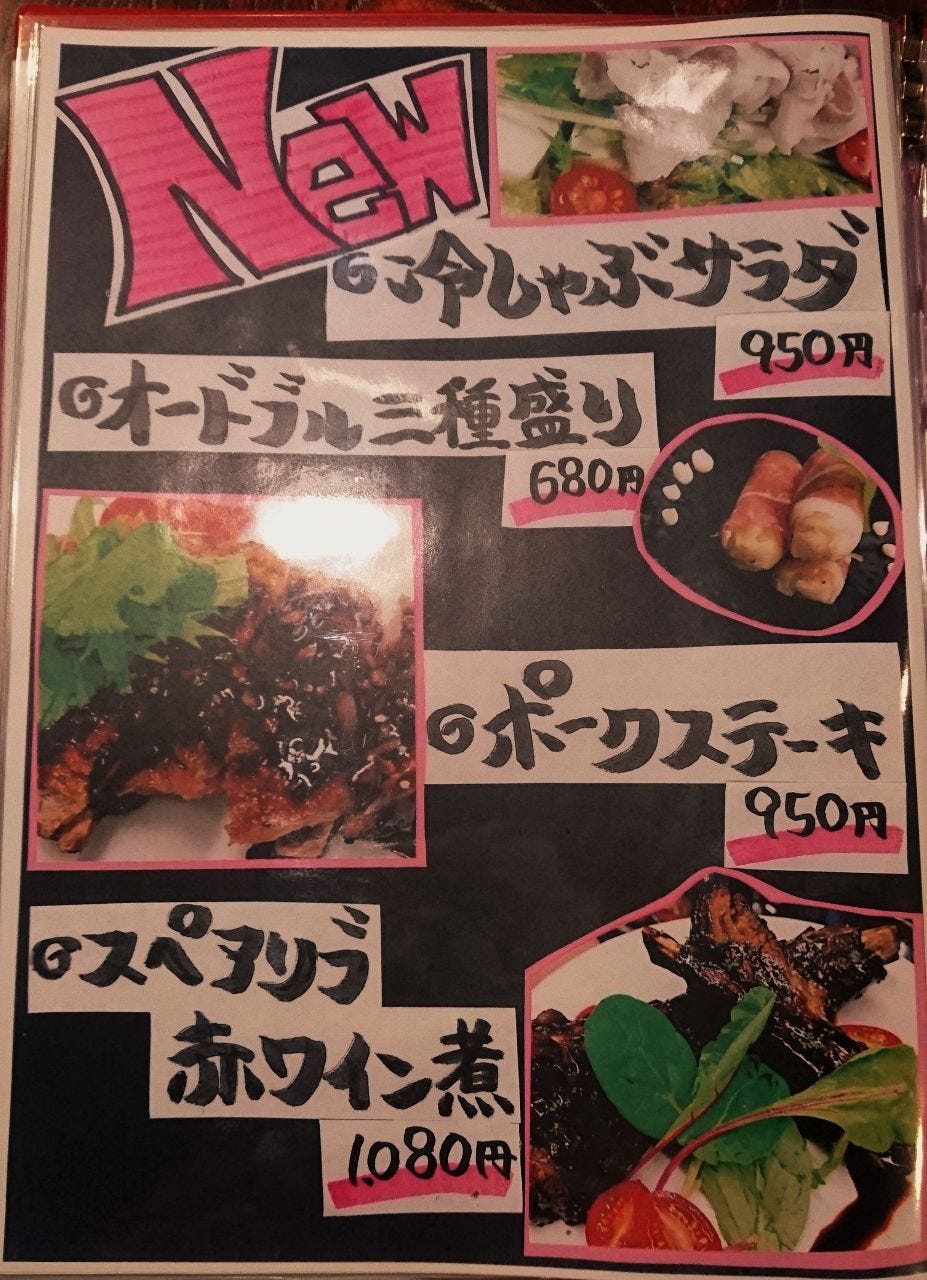 New
冷しゃぶサラダ
950円
オードブル三種盛り
680円
ポークステーキ
950円
スペアリブ
赤ワイン煮
1.080円